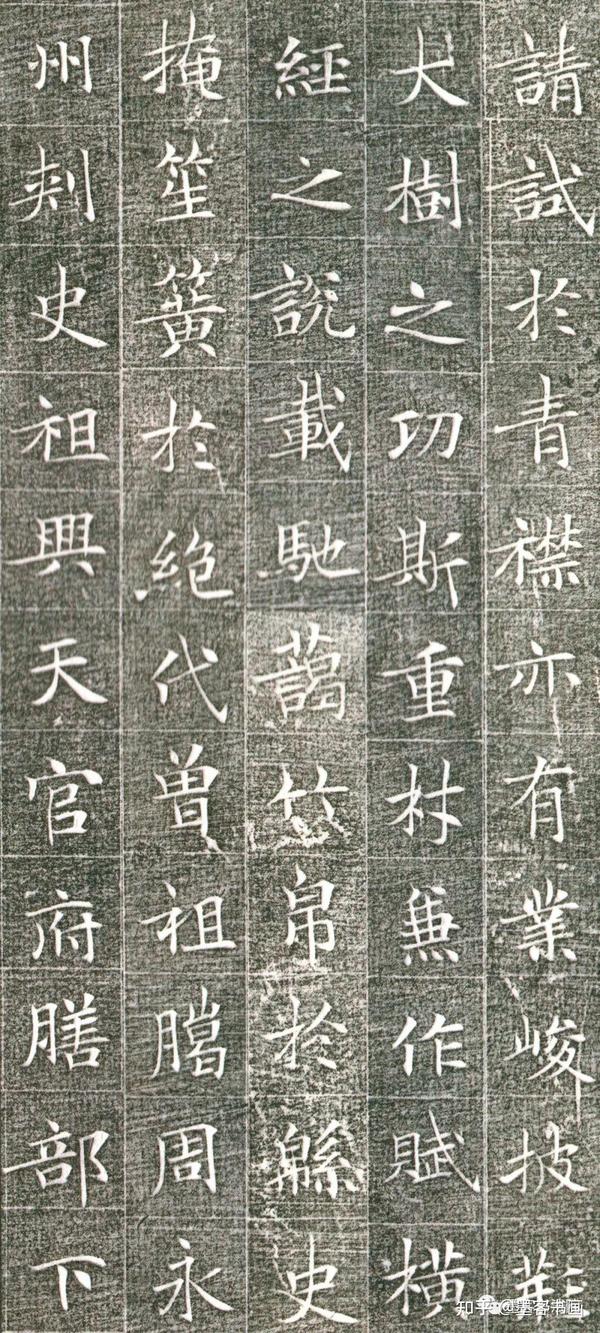 請試於青襟亦有業峻披荊
大樹之功斯重材兼作賦橫
經之說載馳藹竹帛於緜史
掩笙簧於絕代曾祖周永
州刺史祖興天官府膳部下
知乎 @墨客书画